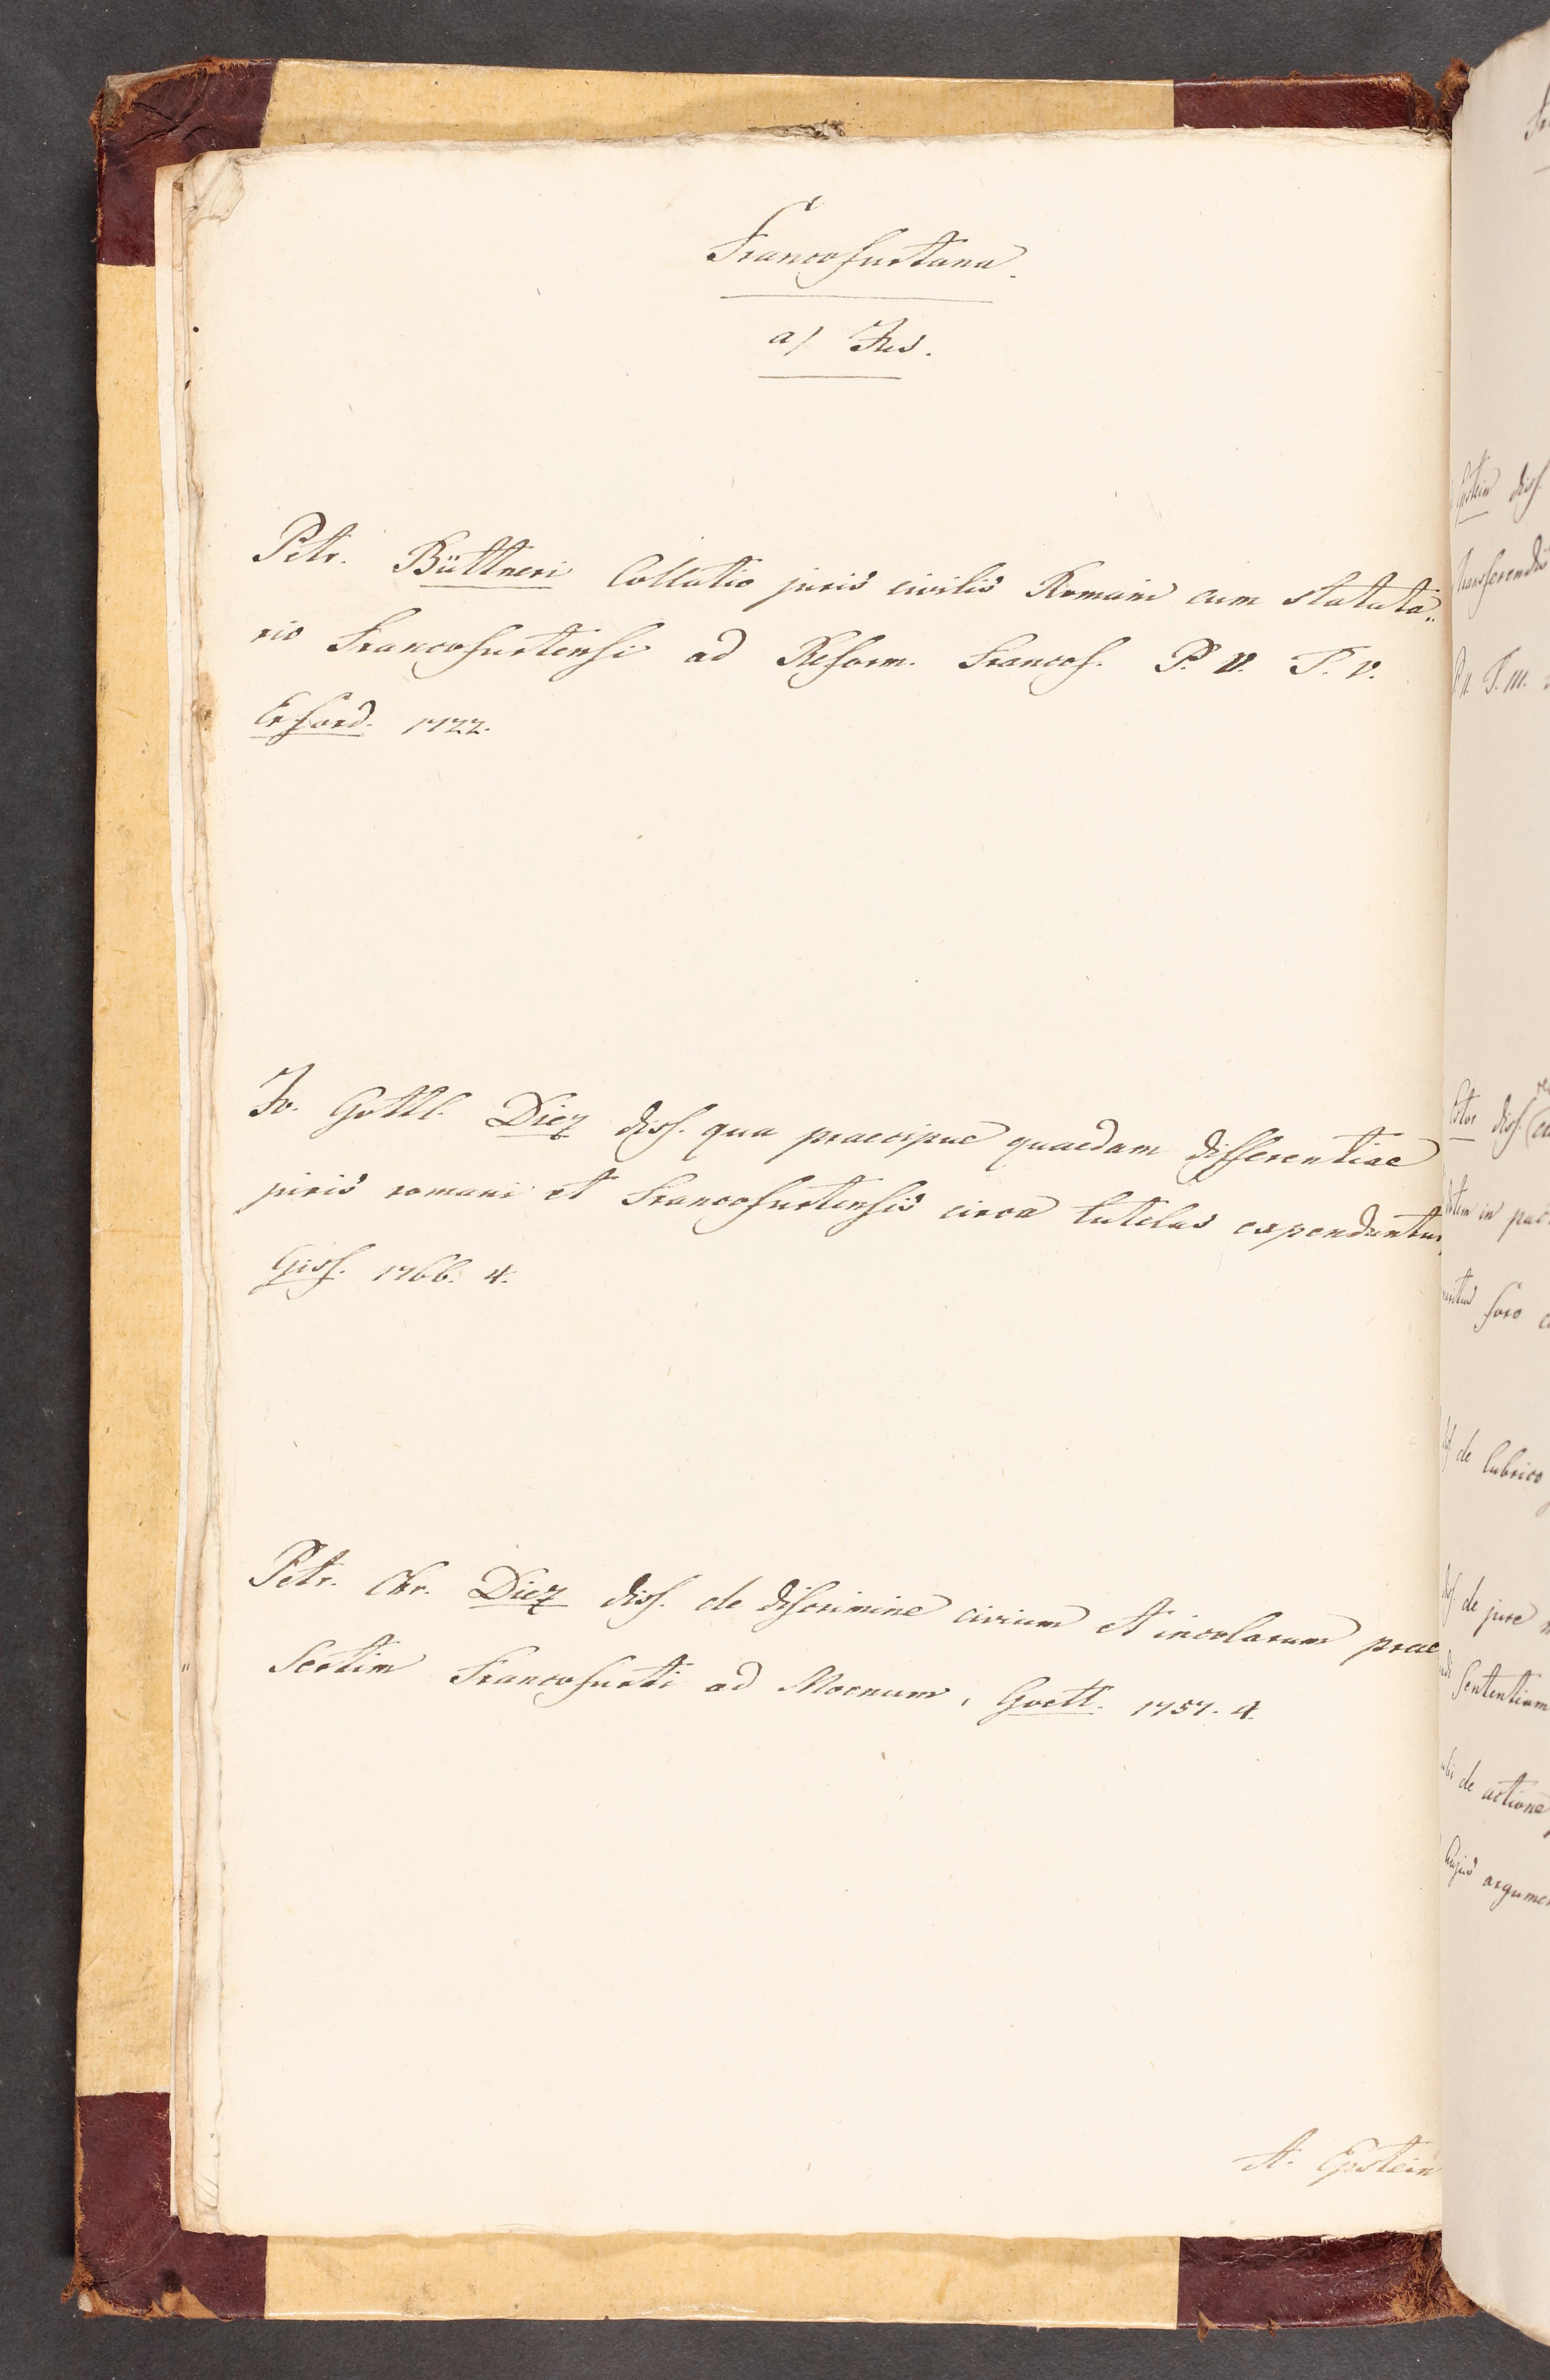 Francofurtana.
a) Jus.
Petr. Büttneri Collatio juris civilis Romani cum statuta„
rio Francofurtensi ad Reform. Francof. P. V. T. V.
Erford. 1722.
Jo. Gottl. Diez diss. qua praecipue quaedam differentiae
juris romani et Francofurtensis circa tutelas expenduntur
Giss. 1766. 4.
Petr. Chr. Diez diss. de discrimine civium et incolarum prae
sertim Francofurti ad Moenum, Goett. 1757. 4.
A. Epstein
Epstein diss.
transferendis
P. II. T. III.
Estor diss.
in
foro
de lubrico
diss. de jure
sententiam
de actione
hujus argumen